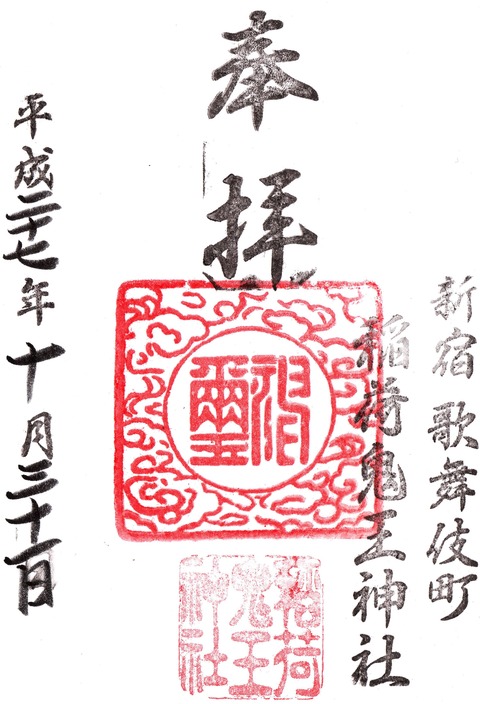 新宿歌舞伎町
稲荷鬼王神社
奉拝
稲荷
鬼王
神社
平成二十七年十月三十一日